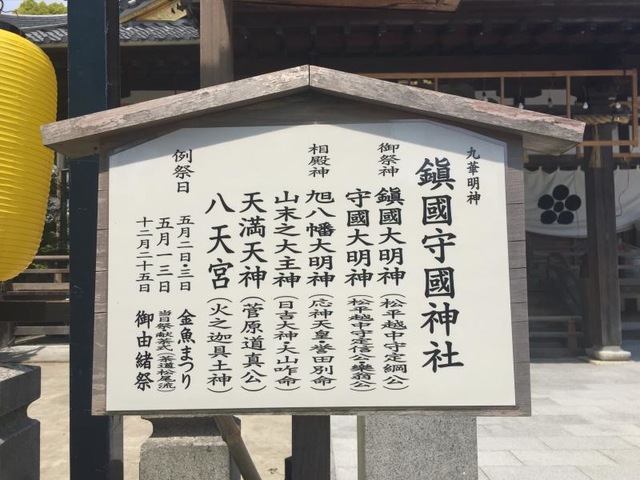 九華明神
鎭國守國神社
御祭神
鎭國大明神（松平越中守定綱公）
守國大明神（松平越中守定信公・樂翁公）
相殿神
旭八幡大明神（応神天皇・誉田別命）
山末之大主神（日吉大神・大山咋命）
天満天神（菅原道真公）
八天宮（火之迦具土神）
例祭日
五月二日・三日 金魚まつり
五月一三日 当日祭献茶式（茶道松尾流）
十二月二十五日 御由緒祭